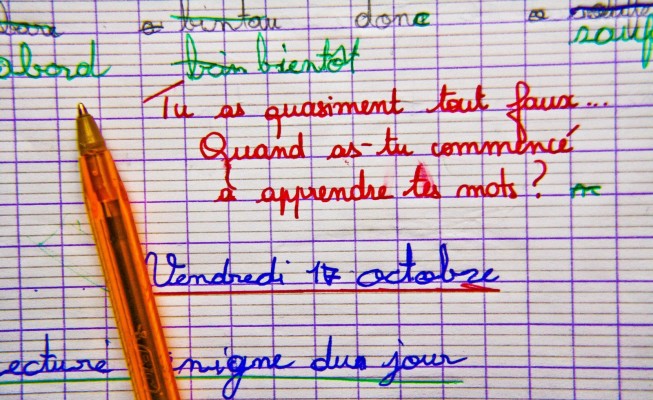 donc
abord bientôt sauf
Tu as quasiment tout faux...
Quand as-tu commencé
à apprendre tes mots ?
Vendredi 17 octobre
ecture nigme du jour